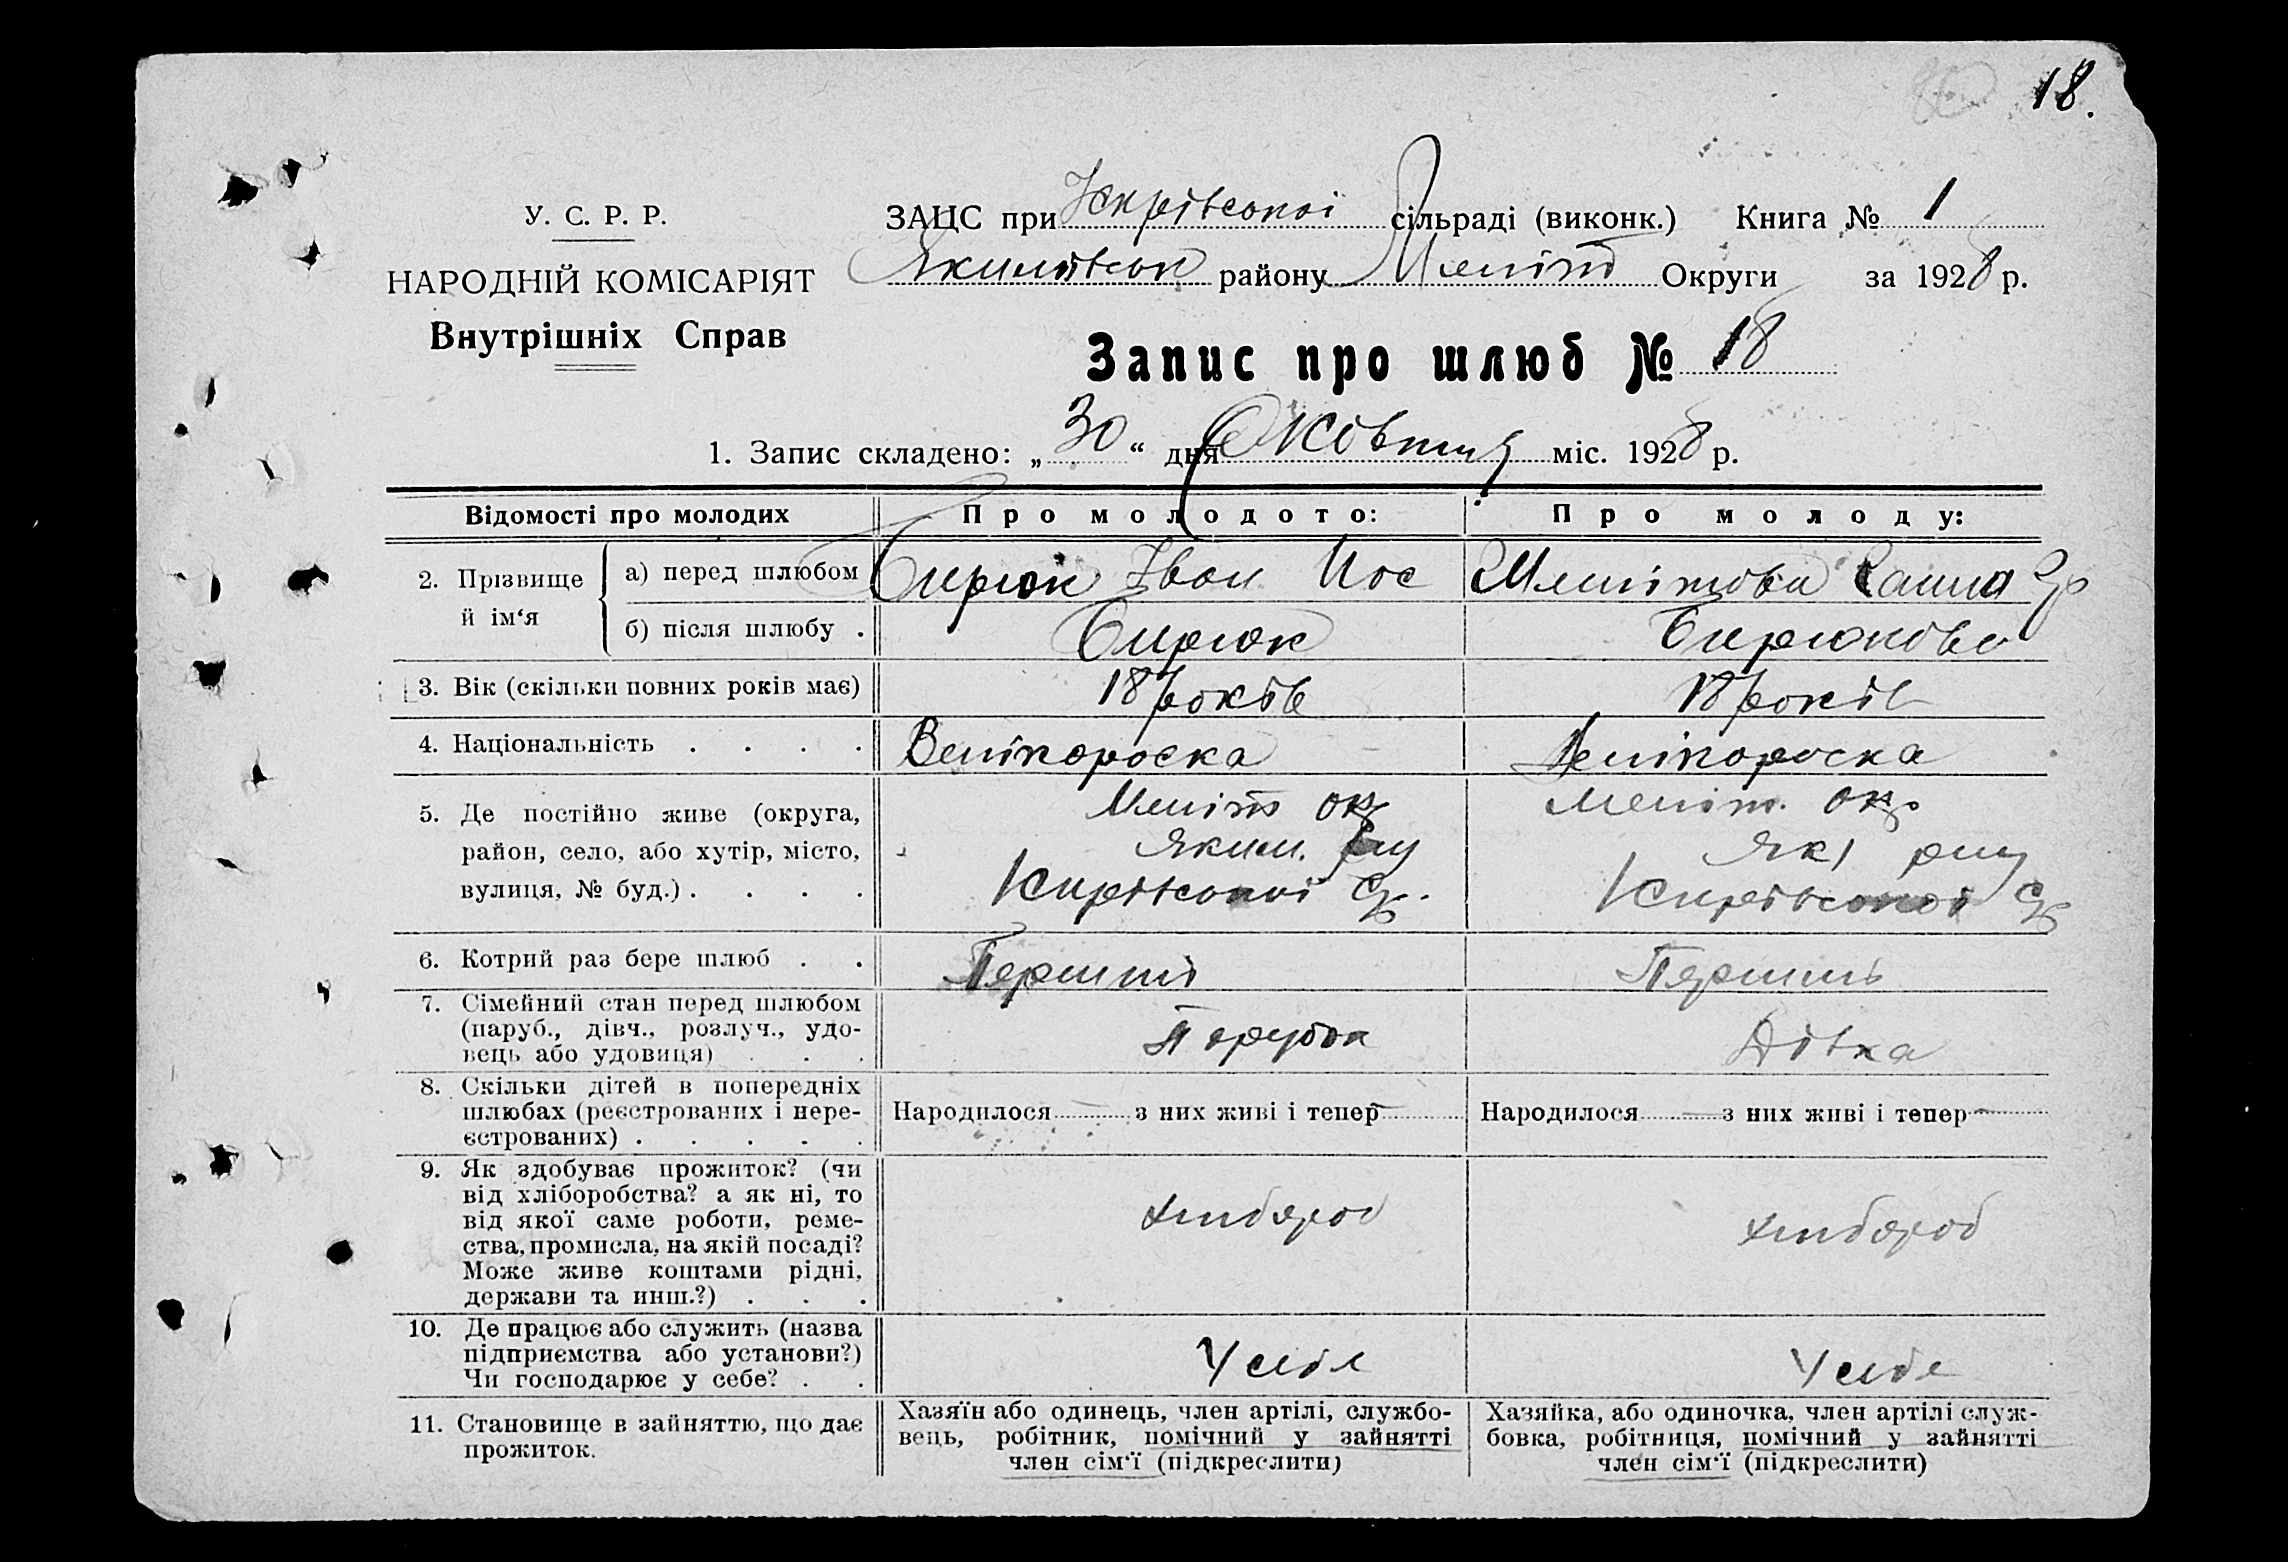 18.
У. С. Р. Р.
НАРОДНІЙ КОМІСАРІЯТ
Внутрішніх Справ
ЗАЦС при сільраді (виконк.) Книга № 1
Якимівськ району Меліт Округи за 1928 р.
Запис про шлюб № 18
1. Запис складено: „30“ дня Жовтня міс. 1928 р.
Відомості про молодих
Про молодого:
Про молоду:
2. Прізвище й ім‘я
а) перед шлюбом
Бирюк Іван Иос
б) після шлюбу .
Бирюк
Бирюкова
3. Вік (скільки повних років має)
18 років
18 років
4. Національність . . . .
Велікороска
Велікороска
5. Де постійно живе (округа,
район, село, або хутір, місто,
вулиця, № буд.) . . . .
Меліт ок
Яким. рну
Кирівської с.
Меліт. ок.
Як рну
Кирівської с
6. Котрий раз бере шлюб . .
Перший
Перший
7. Сімейний стан перед шлюбом
(паруб., дівч., розлуч., удо-
вець або удовиця) . . .
Парубок
Дівка
8. Скільки дітей в попередніх
шлюбах (реєстрованих і нере-
єстрованих) . . . . .
Народилося — з них живі і тепер —
Народилося — з них живі і тепер —
9. Як здобуває прожиток? (чи
від хліборобства? а як ні, то
від якої саме роботи, реме-
ства, промисла, на якій посаді?
Може живе коштами рідні,
держави та инш.?) . . .
хлибороб
хлибороб
10. Де працює або служить (назва
підприємства або установи?)
Чи господарює у себе? . .
У себе
У себе
11. Становище в зайняттю, що дає
прожиток.
Хазяїн або одинець, член артілі, службо-
вець, робітник, помічний у зайнятті
член сім‘ї (підкреслити)
Хазяйка, або одиночка, член артілі служ-
бовка, робітниця, помічний у зайнятті
член сім‘ї (підкреслити)